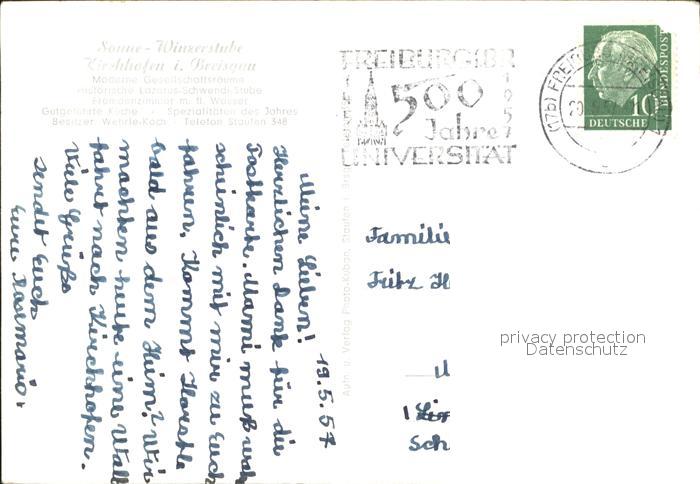 Sonne - Winzerstube
Kirchhofen i. Breisgau
Moderne Gesellschaftsräume
Historische Lazarus-Schwendi-Stube
Fremdenzimmer m. fl. Wasser
Gutgeführte Küche - Spezialitäten des Jahres
Besitzer: Wehrle-Koch Telefon Staufen 348
FREIBURG (BR
1457
500
Jahre
1957
UNIVERSITÄT
(17b) FREI
10
BUNDESPOST
DEUTSCHE
19.5.57
Meine Lieben!
Herzlichen Dank für die
Postkarte. Mami muß wah
scheinlich mit mir zu Euch
fahren. Kommt Horstle
bald aus dem Heim? Wir
machten heute eine Wall
fahrt nach Kirchhofen.
Viele Grüße
sendet Euch
Eure Rosmarie.
Aufn. u. Verlag Photo-Kaban, Staufen i. Brsg
Familie
Fritz H
Sch
privacy protection
Datenschutz